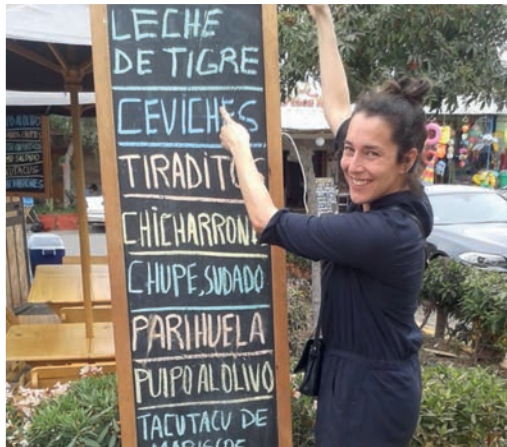 LECHE
DE TIGRE
CEVICHES
TIRADITOS
CHICHARRON
CHUPE, SUDADO
PARIHUELA
PULPO AL OLIVO
TACUTACU DE
MARISCOS